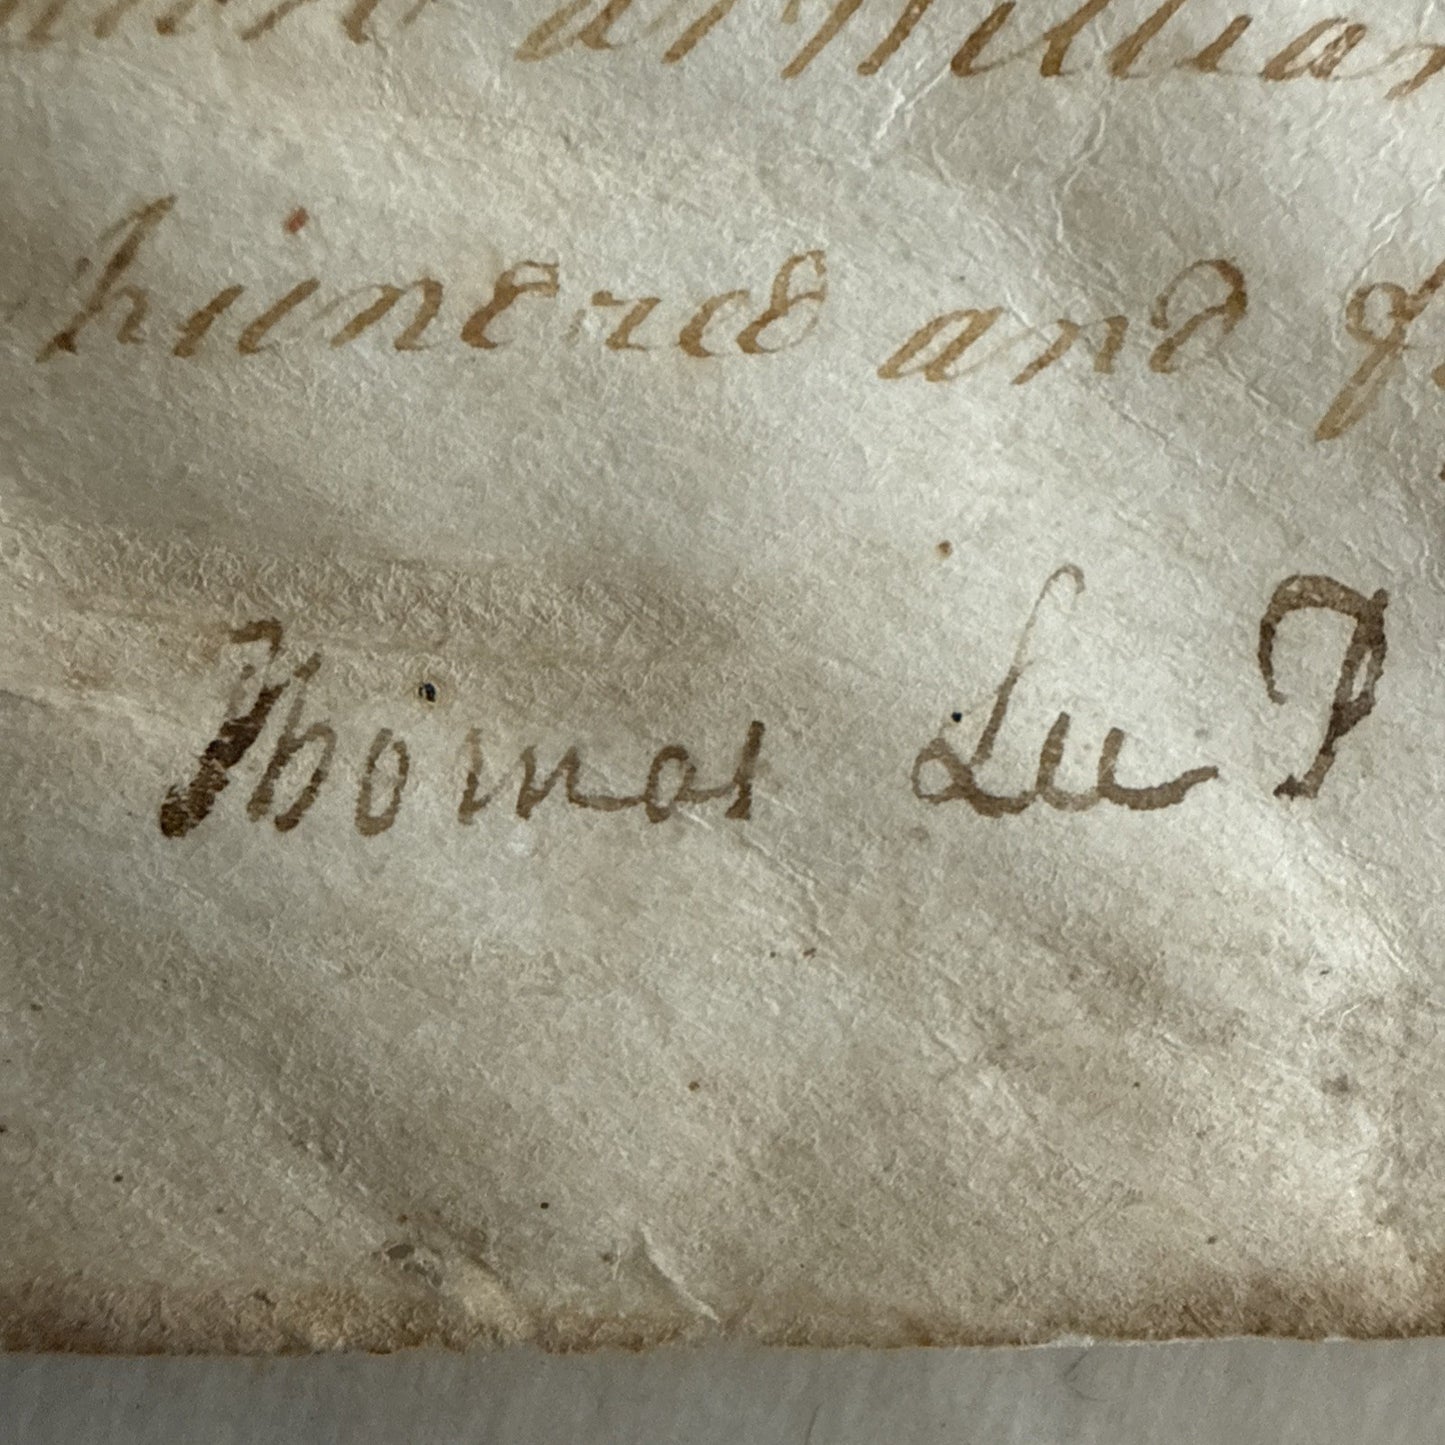 at Willian
hundred and
Thomas Lee P